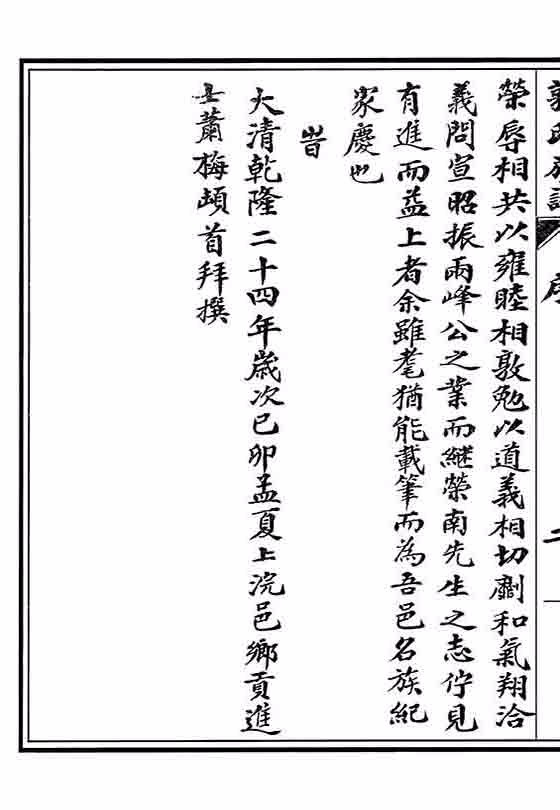 郭氏族譜 序 二
榮辱相共以雍睦相敦勉以道義相切劘和氣翔洽
義問宣昭振兩峰公之業而繼榮南先生之志佇見
有進而益上者余雖耄猶能載筆而為吾邑名族紀
家慶也
旹
大清乾隆二十四年歲次己卯孟夏上浣邑鄉貢進
士蕭梅頓首拜撰